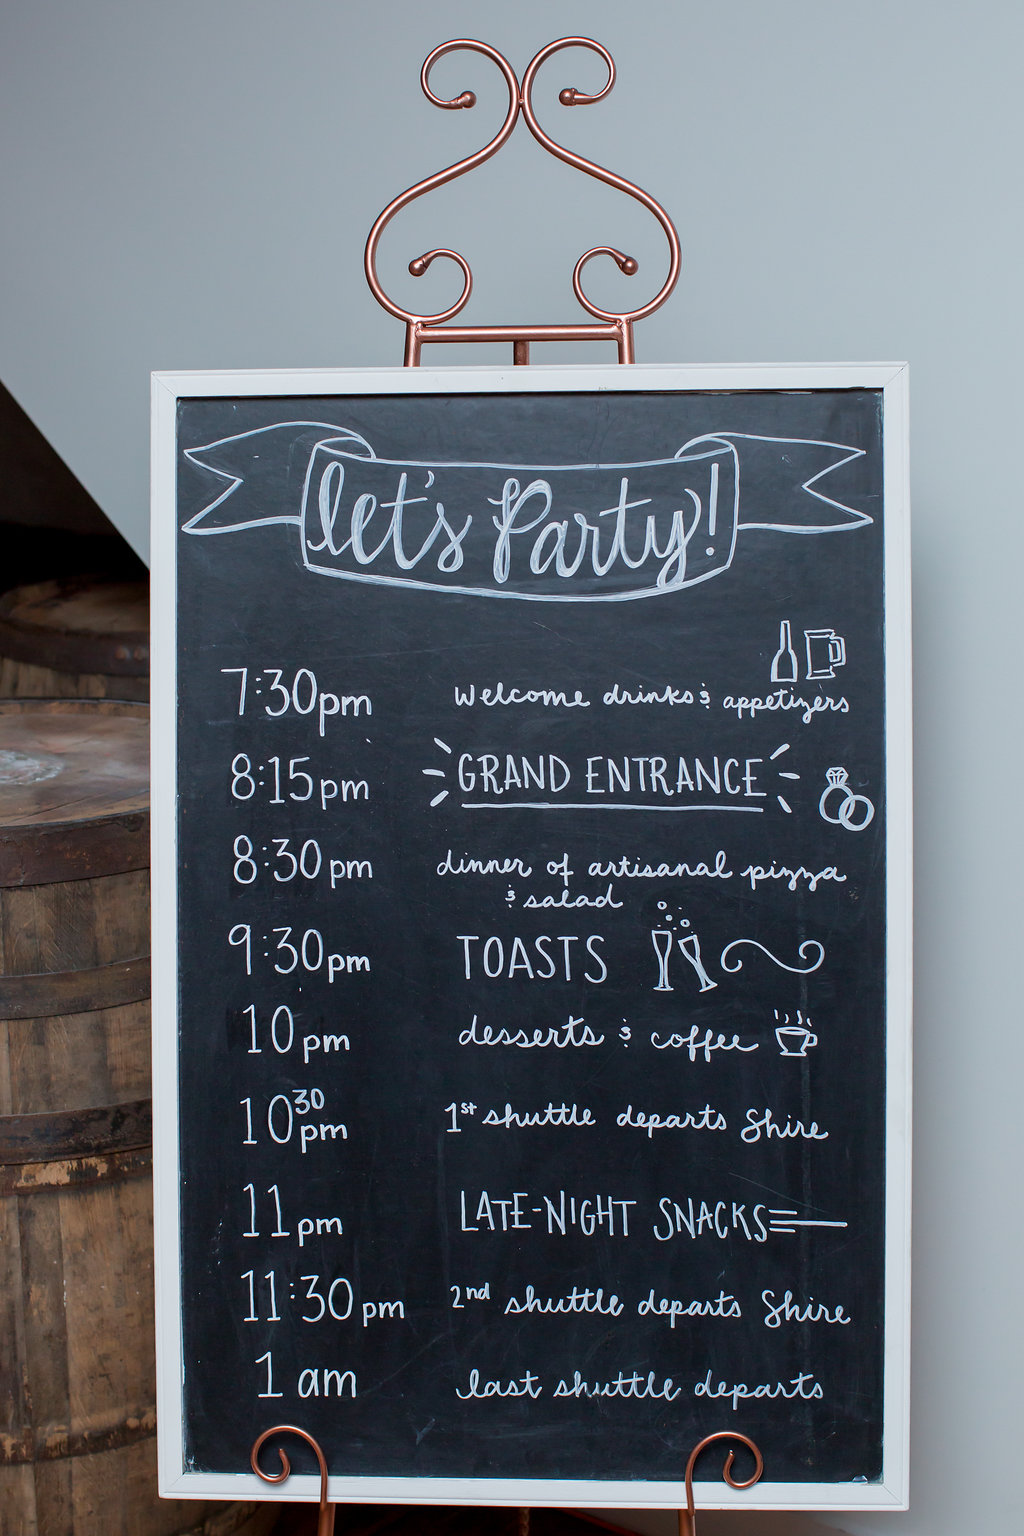 let's Party!
7:30pm welcome drinks & appetizers
8:15pm GRAND ENTRANCE
8:30pm dinner of artisanal pizza
& salad
9:30pm TOASTS
10pm desserts & coffee
10 30 pm 1st shuttle departs Shire
11pm LATE-NIGHT SNACKS
11:30pm 2nd shuttle departs Shire
1 am last shuttle departs